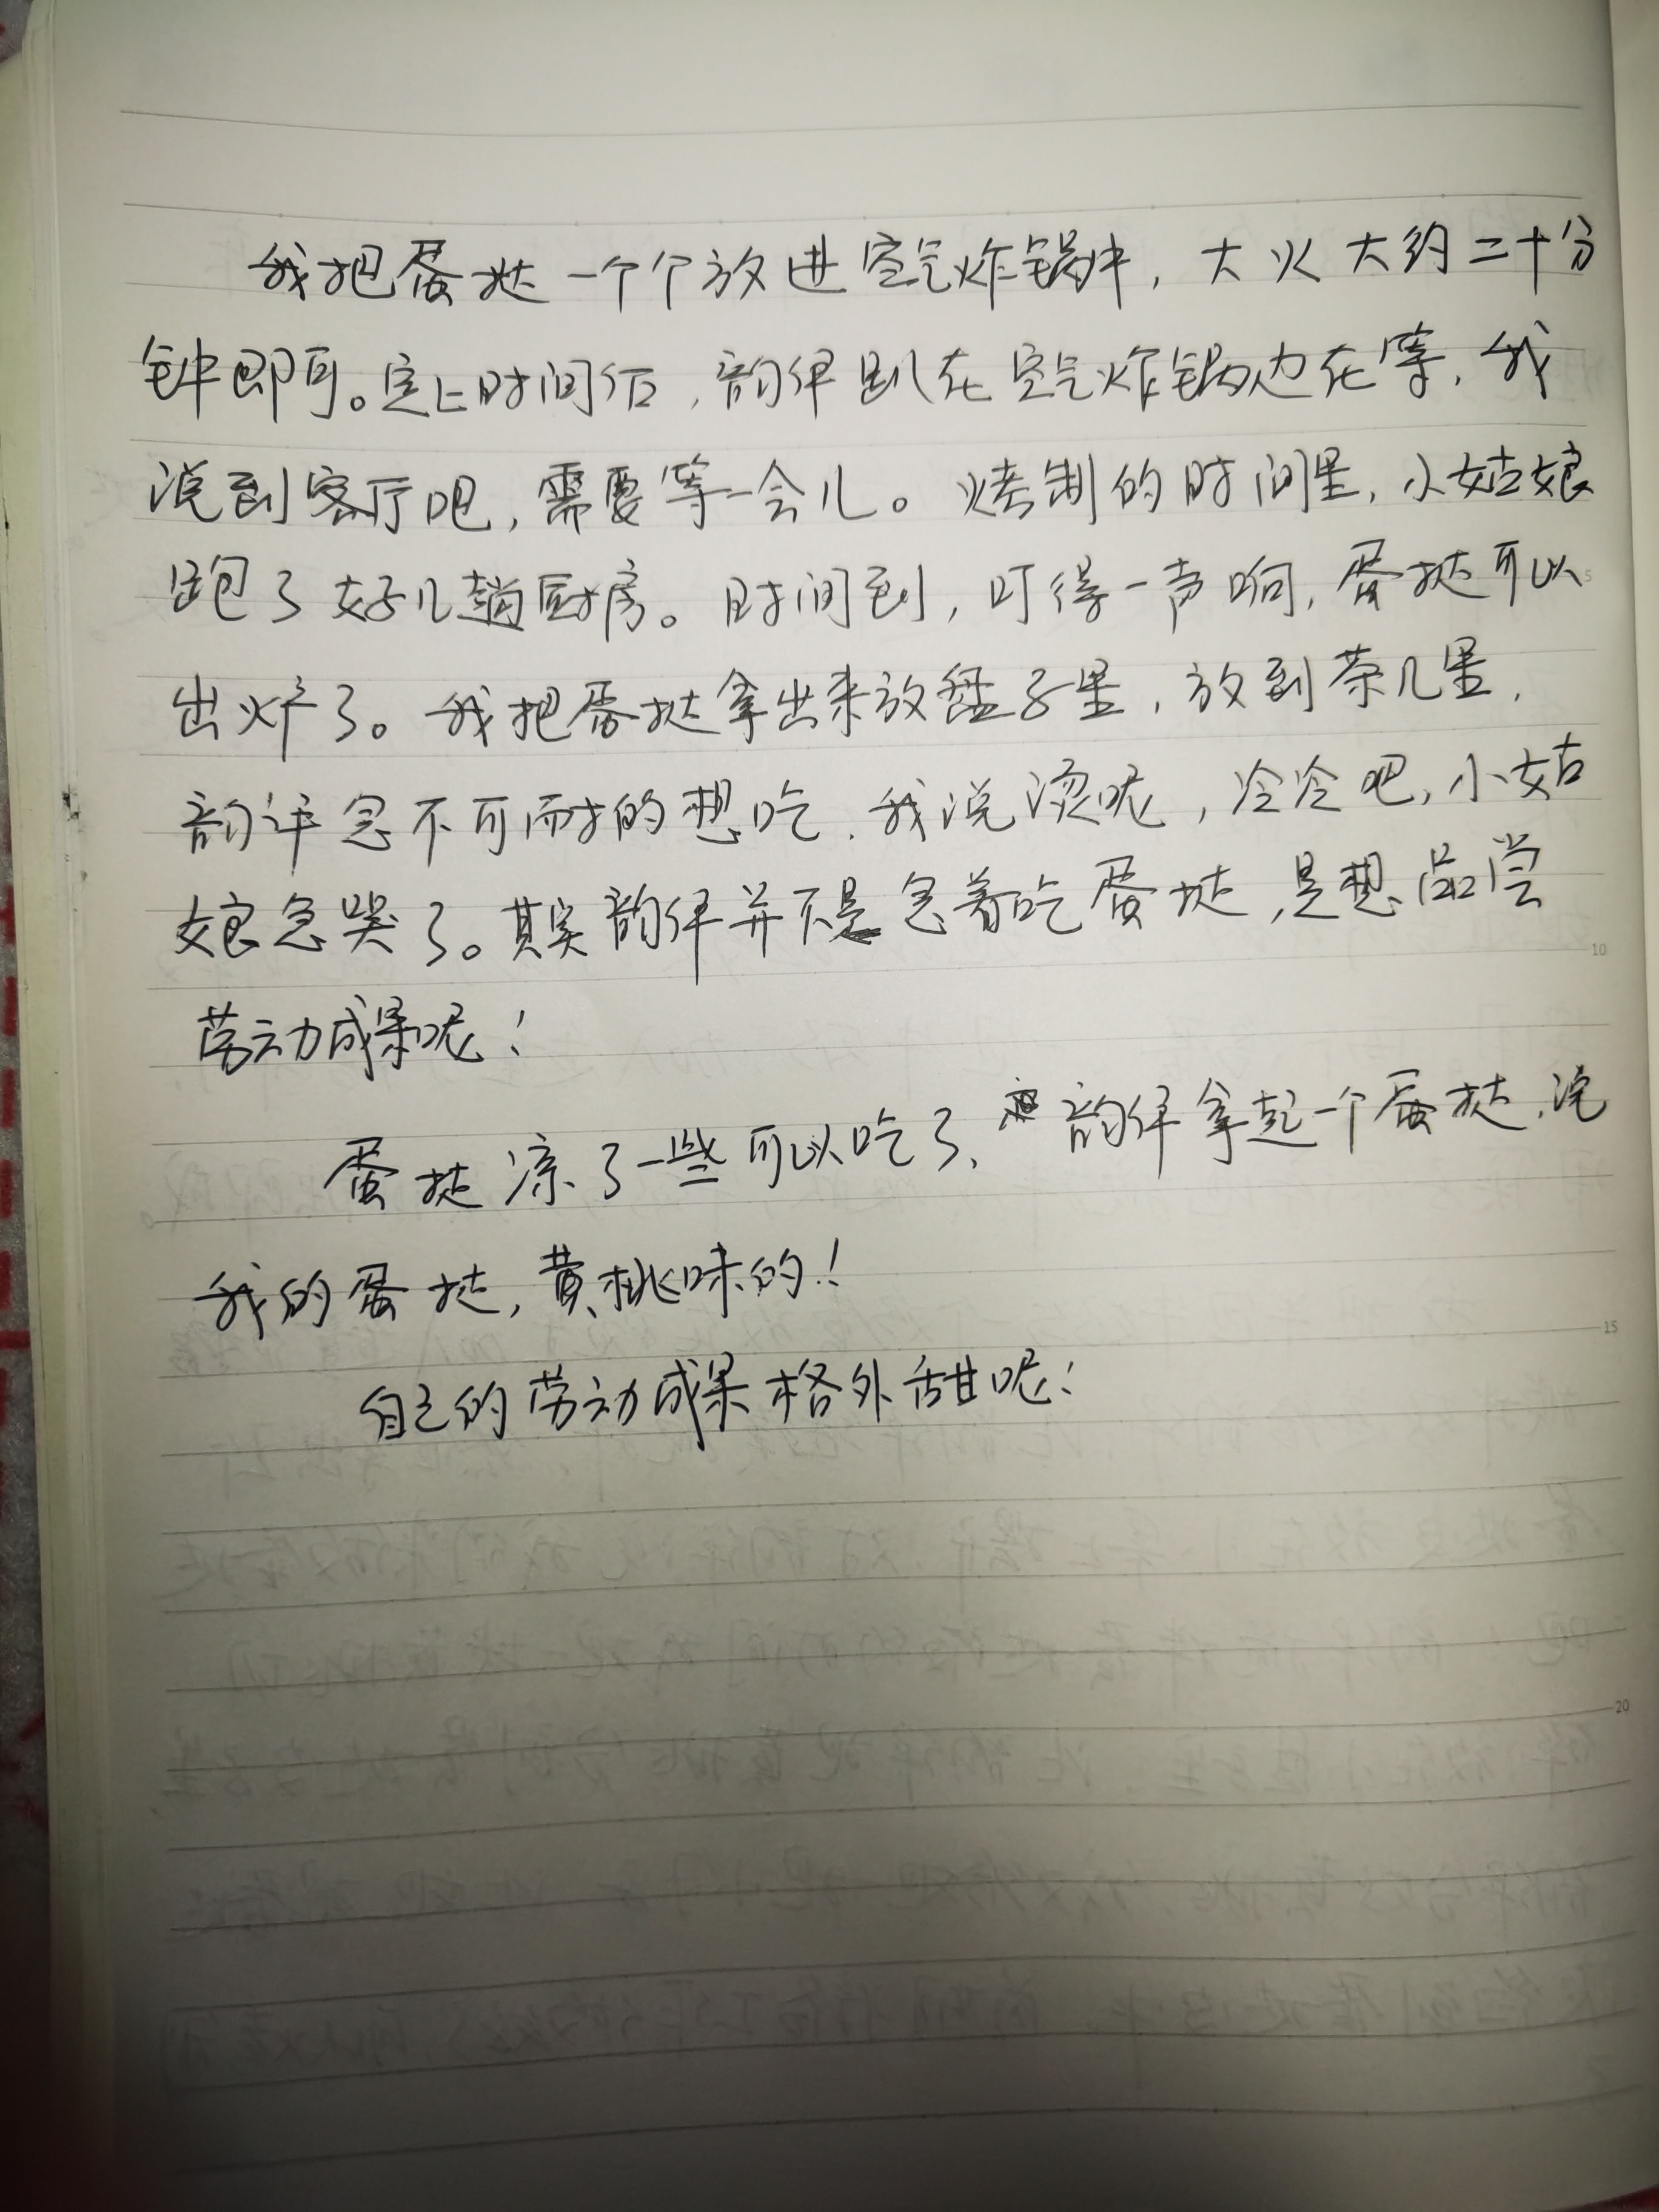 我把蛋挞一个个放进空气炸锅中，大火大约二十分
钟即可。定上时间后，韵伊趴在空气炸锅边在等，我
说到客厅吧，需要等一会儿。烤制的时间里，小姑娘
跑了好几趟厨房。时间到，叮得一声响，蛋挞可以
出炉了。我把蛋挞拿出来放盘子里，放到茶几里，
韵伊急不可耐的想吃，我说烫呢，冷冷吧，小姑
娘急哭了。其实韵伊并不是急着吃蛋挞，是想品尝
劳动成果呢！
蛋挞凉了一些可以吃了，韵伊拿起一个蛋挞，说
我的蛋挞，黄桃味的！
自己的劳动成果格外甜呢！
5
10
15
20